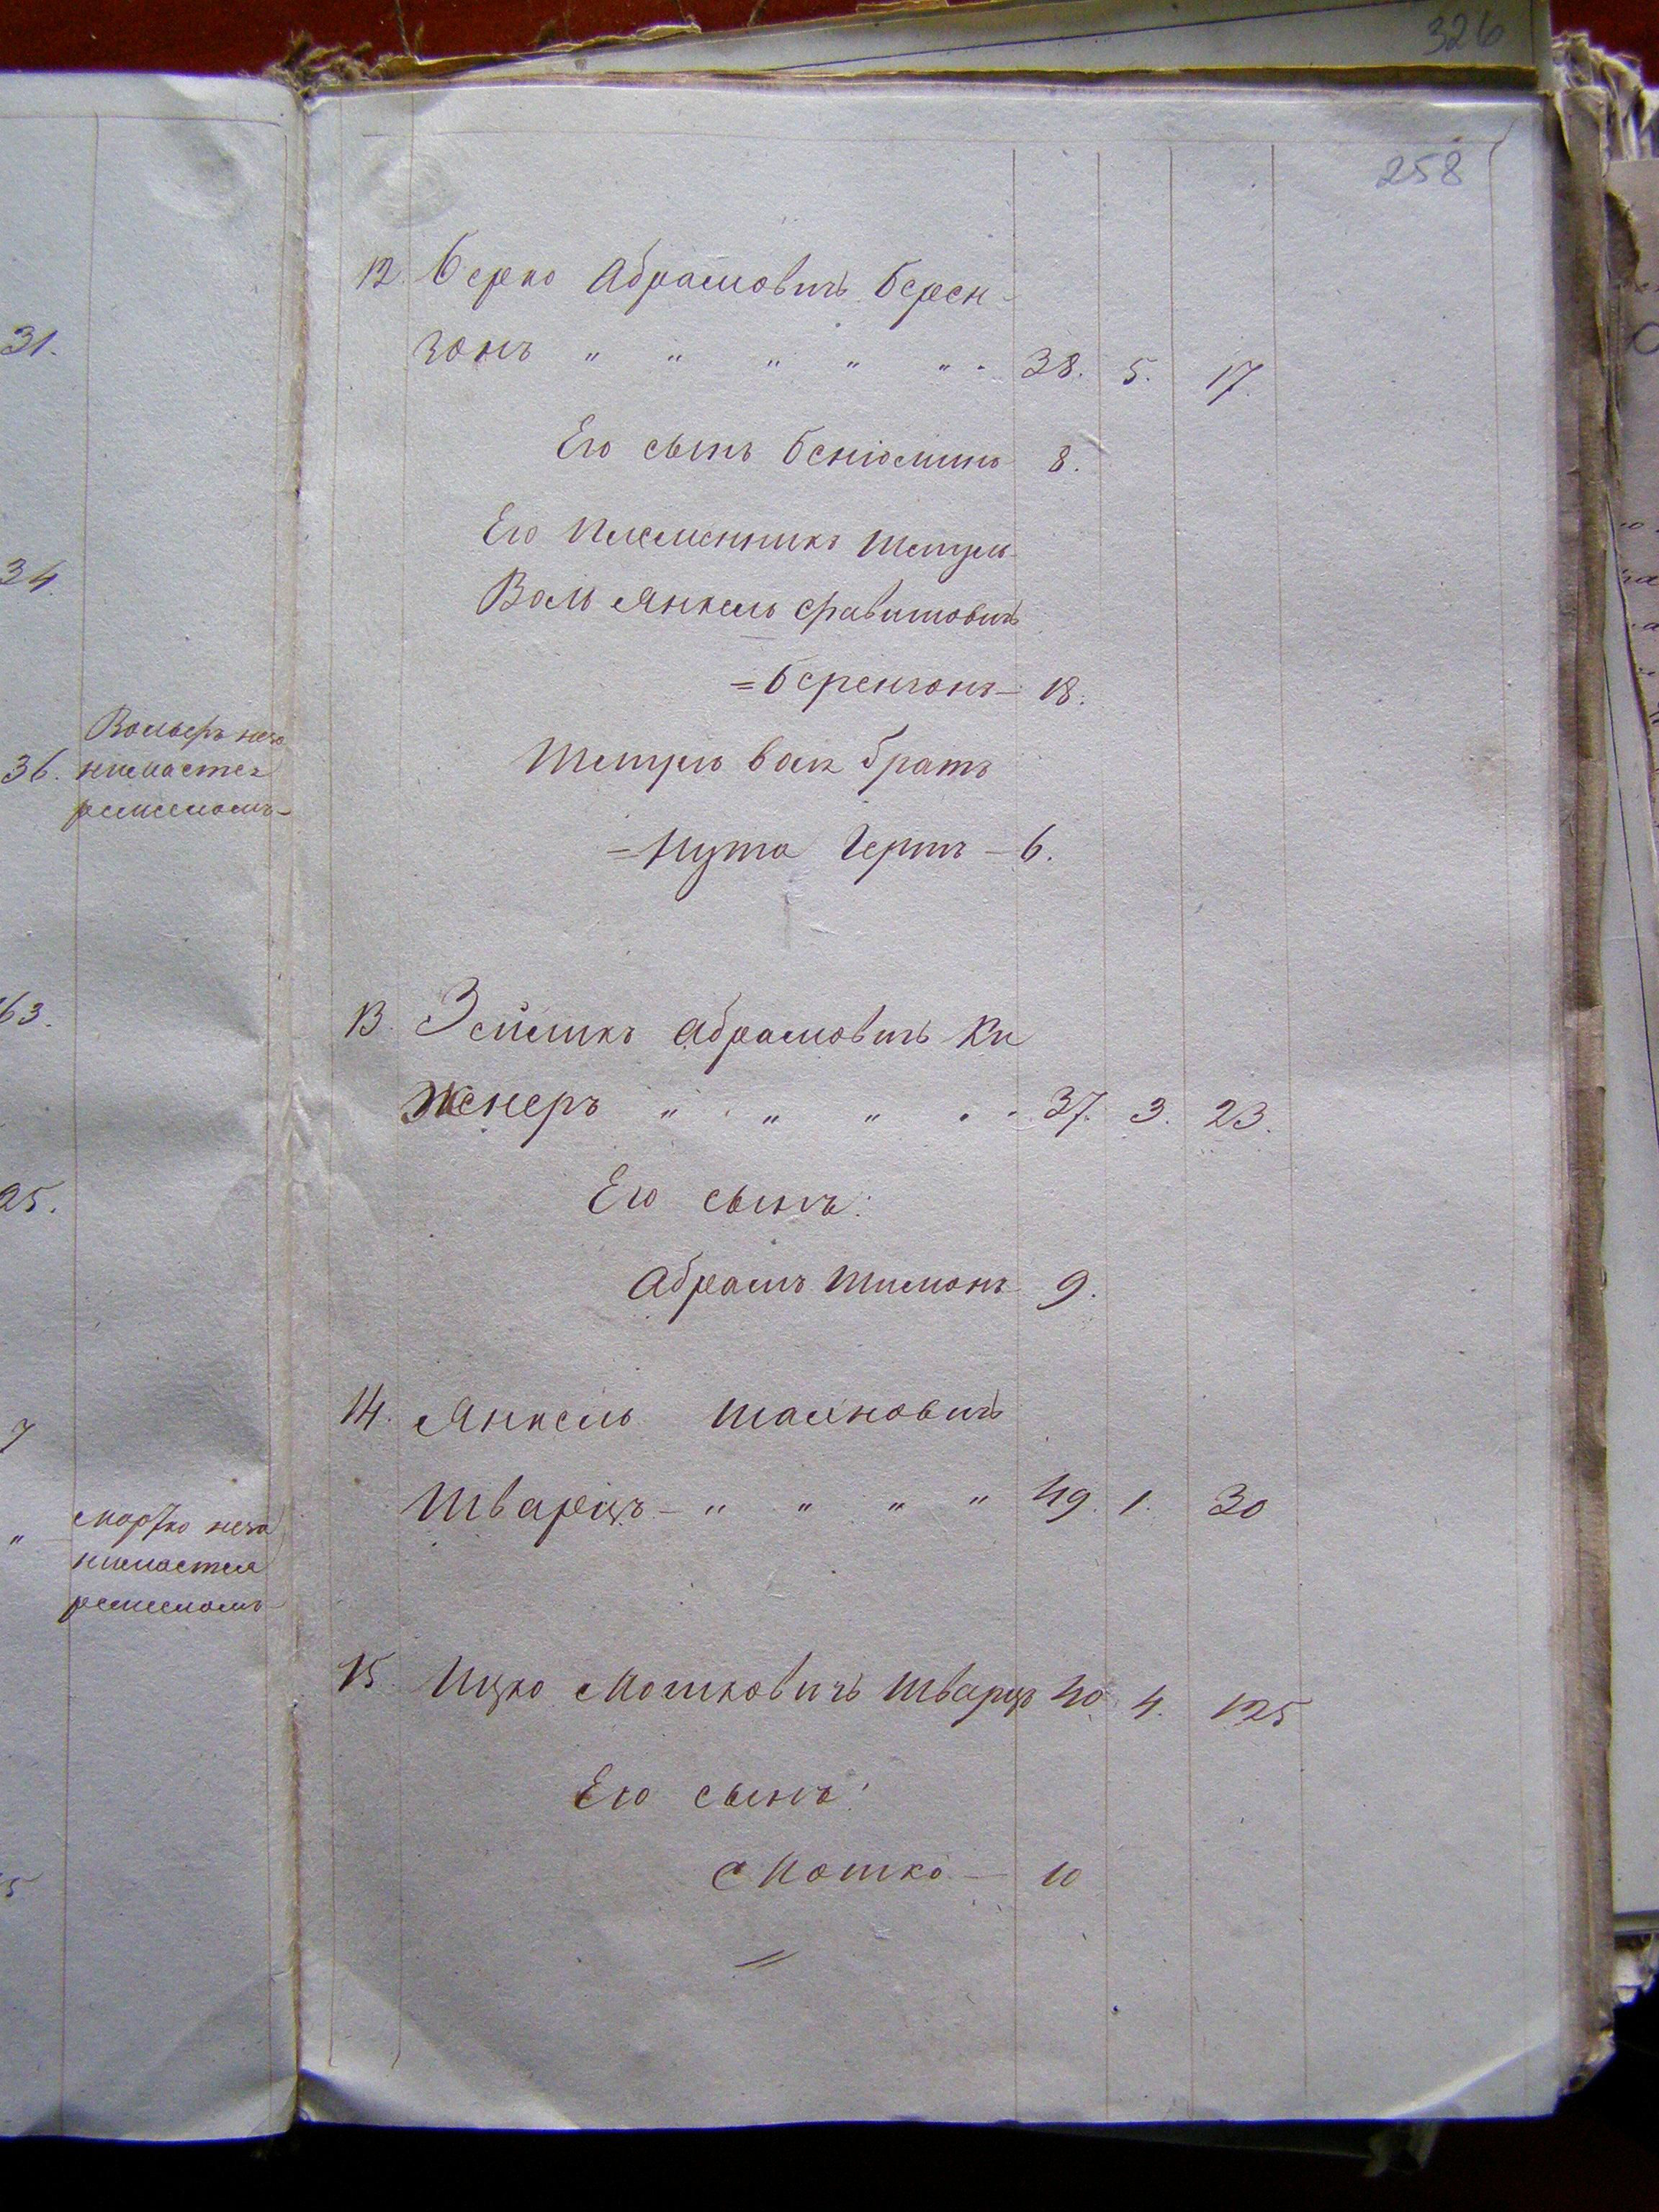 326
258
31.
34.
Вольфъ неза
36. нимается
ремесломъ
63.
25.
7
" Мортко неза
нимается
ремесломъ
5
12. Берко Абрамовичъ Берен-
зонъ " " " " " . 38. 5. 17.
Его сынъ Беніоминъ 8.
Его племенникъ Шмуль
Вольъ Янкель
=Берензонъ— 18.
Шмуль Вольъ братъ
=Нута Герть — 6.
13. Зеймикъ Абрамовичъ Ки
женеръ " " " . . 37. 3. 23.
Его сынъ:
Абрамъ Шимонъ 9.
14. Янкель Шаиновичъ
Шварцъ — " " " " 49. 1. 30
15. Ицко Мошковичъ Шварцъ 40 4. 125
Его сынъ:
Мошко — 10